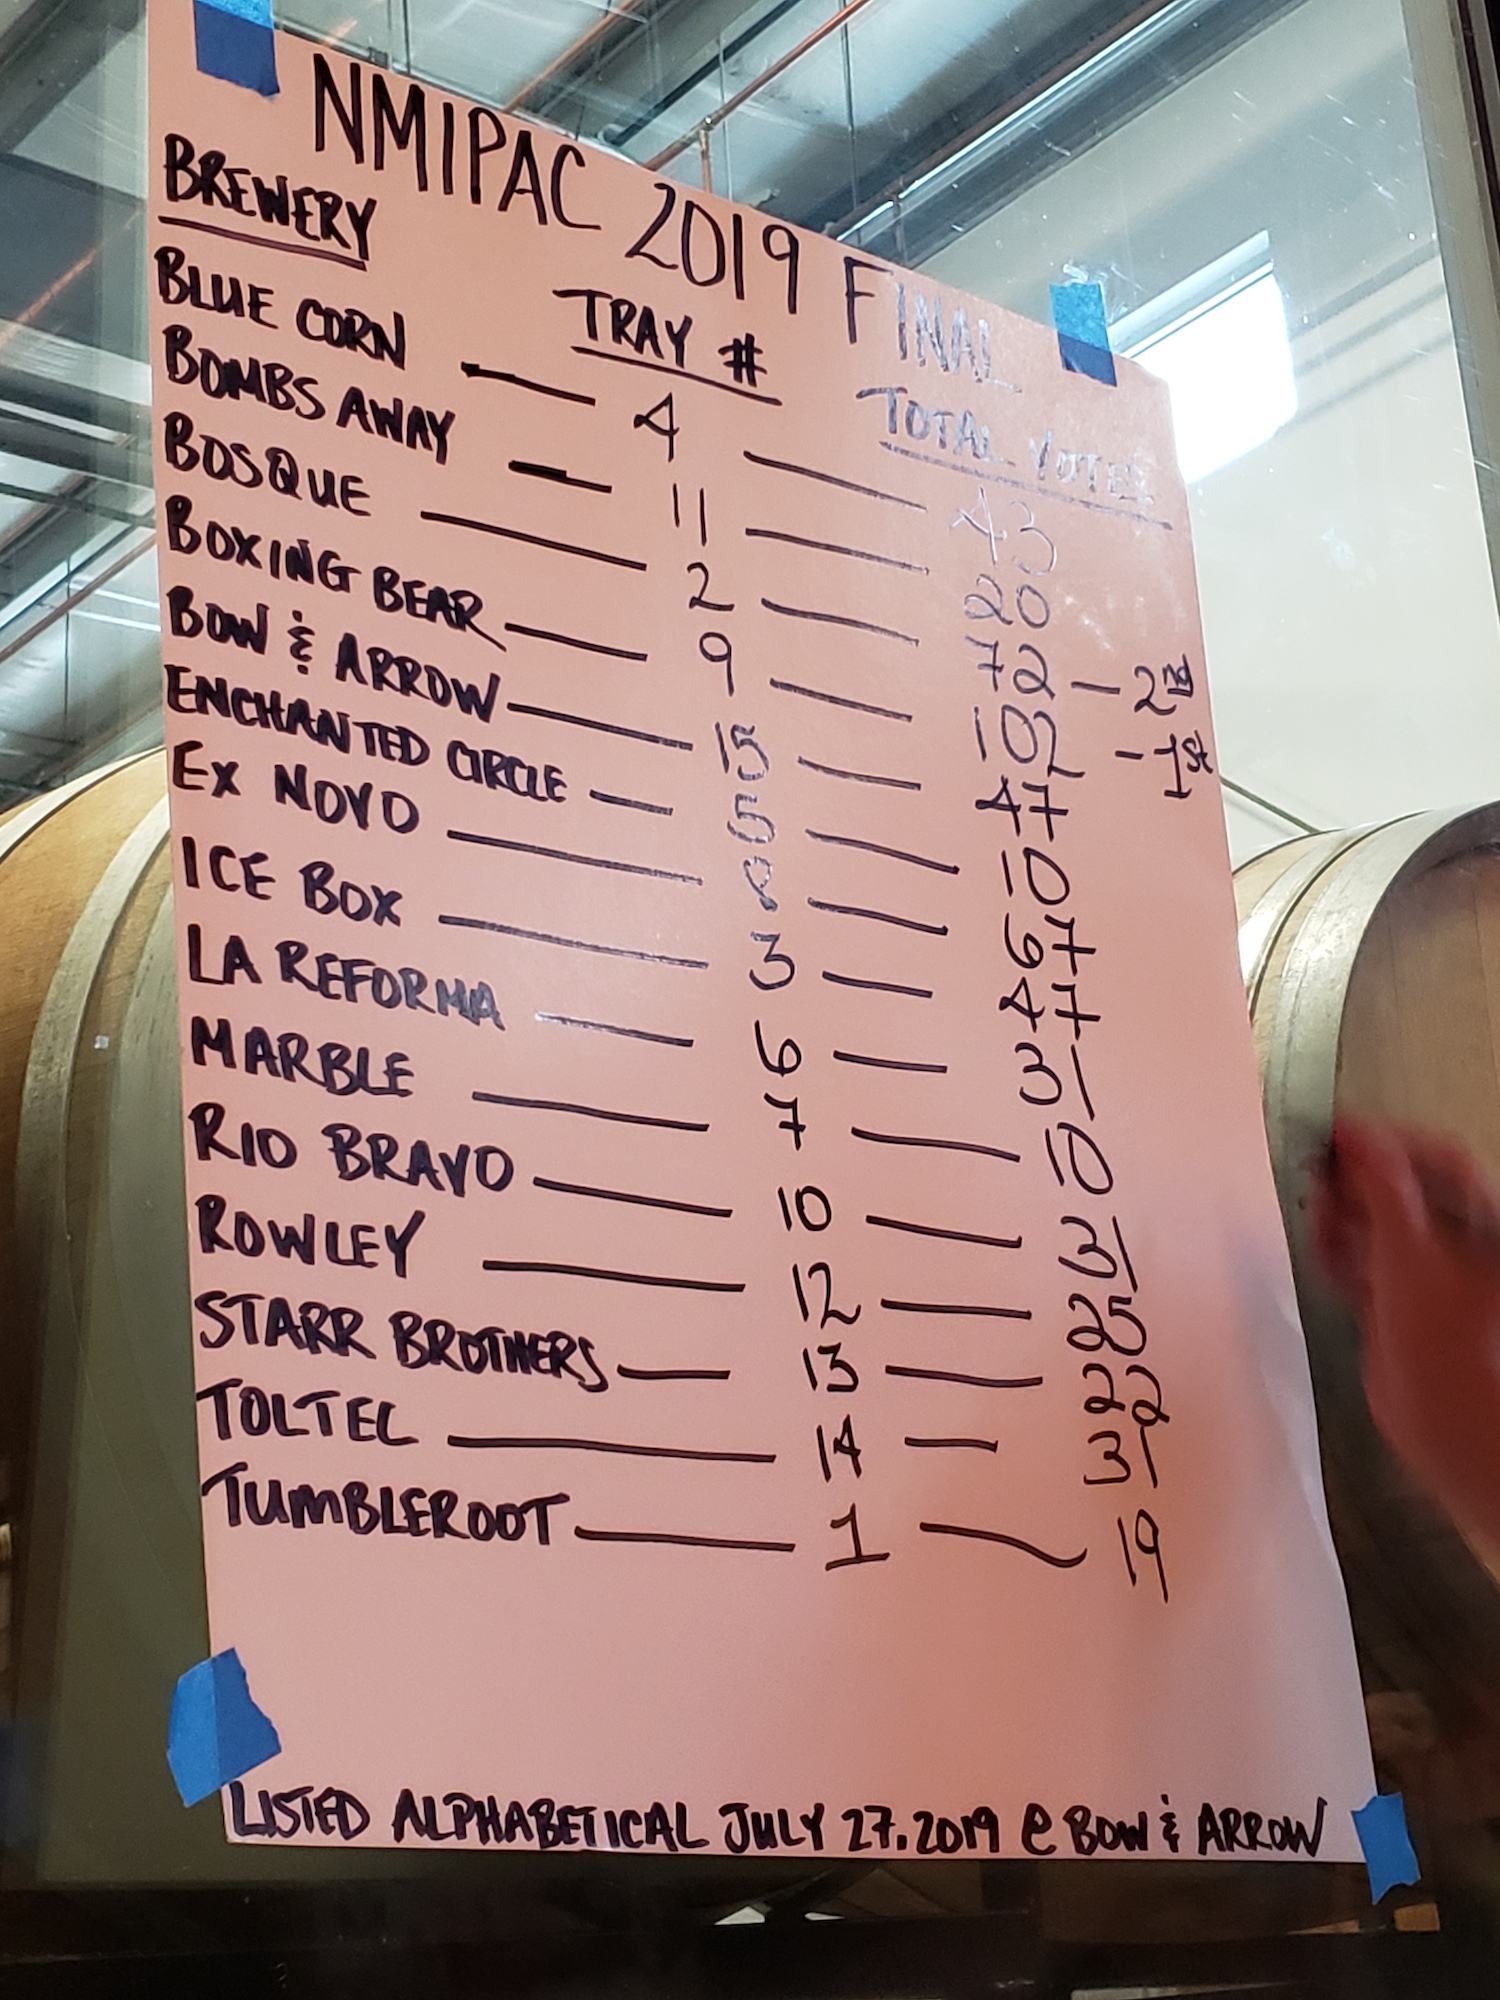 NMIPAC 2019 FINAL
BREWERY TRAY # TOTAL VOTES
BLUE CORN — 4 — 43
BOMBS AWAY — 11 — 20
BOSQUE — 2 — 72 – 2nd
BOXING BEAR — 9 — 102 – 1st
BOW & ARROW — 15 — 47
ENCHANTED CIRCLE — 5 — 10
EX NOVO — 8 — 67
ICE BOX — 3 — 47
LA REFORMA — 6 — 31
MARBLE — 7 — 10
RIO BRAVO — 10 — 31
ROWLEY — 12 — 25
STARR BROTHERS — 13 — 22
TOLTEC — 14 — 31
TUMBLEROOT — 1 — 19
LISTED ALPHABETICAL JULY 27.2019 @ BOW & ARROW